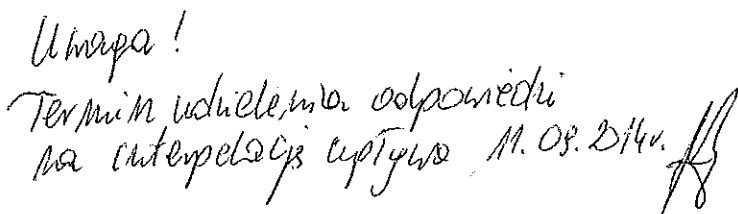 Uwaga!
Termin udzielenia odpowiedzi
na interpelację upływa 11.09.2014r.